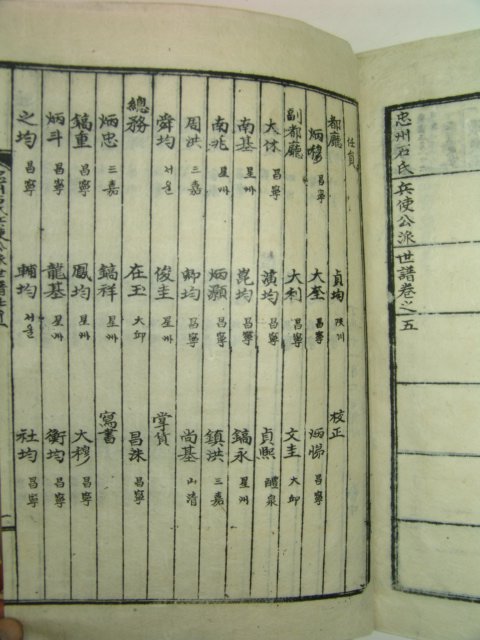 忠州石氏兵使公派世譜卷之五
任員
都廳 貞均 陜川 校正
炳穆 昌寧 大奎 昌寧 炳悌 昌寧
副都廳 大利 昌寧 文圭 大邱
大休 昌寧 演均 昌寧 貞熙 醴泉
南基 星州 崑均 昌寧 鎬永 星州
南兆 星州 炳灝 星州 鎮洪 三嘉
周洪 三嘉 卿均 昌寧 尚基 山清
舜均 서울 俊圭 星州 掌貨
總務 在玉 大邱 昌洙 昌寧
炳忠 三嘉 鎬祥 星州 寫書
鎬重 昌寧 鳳均 星州 大穆 昌寧
炳斗 昌寧 龍基 星州 衡均 昌寧
之均 昌寧 輔均 서울 社均 昌寧